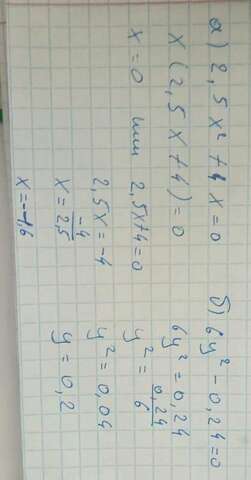 а) 2,5x² + 4x = 0
x (2,5x + 4) = 0
x = 0 или 2,5x + 4 = 0
2,5x = -4
x = -4/2,5
x = -1,6
б) 6y² - 0,24 = 0
6y² = 0,24
y² = 0,24/6
y² = 0,04
y = 0,2